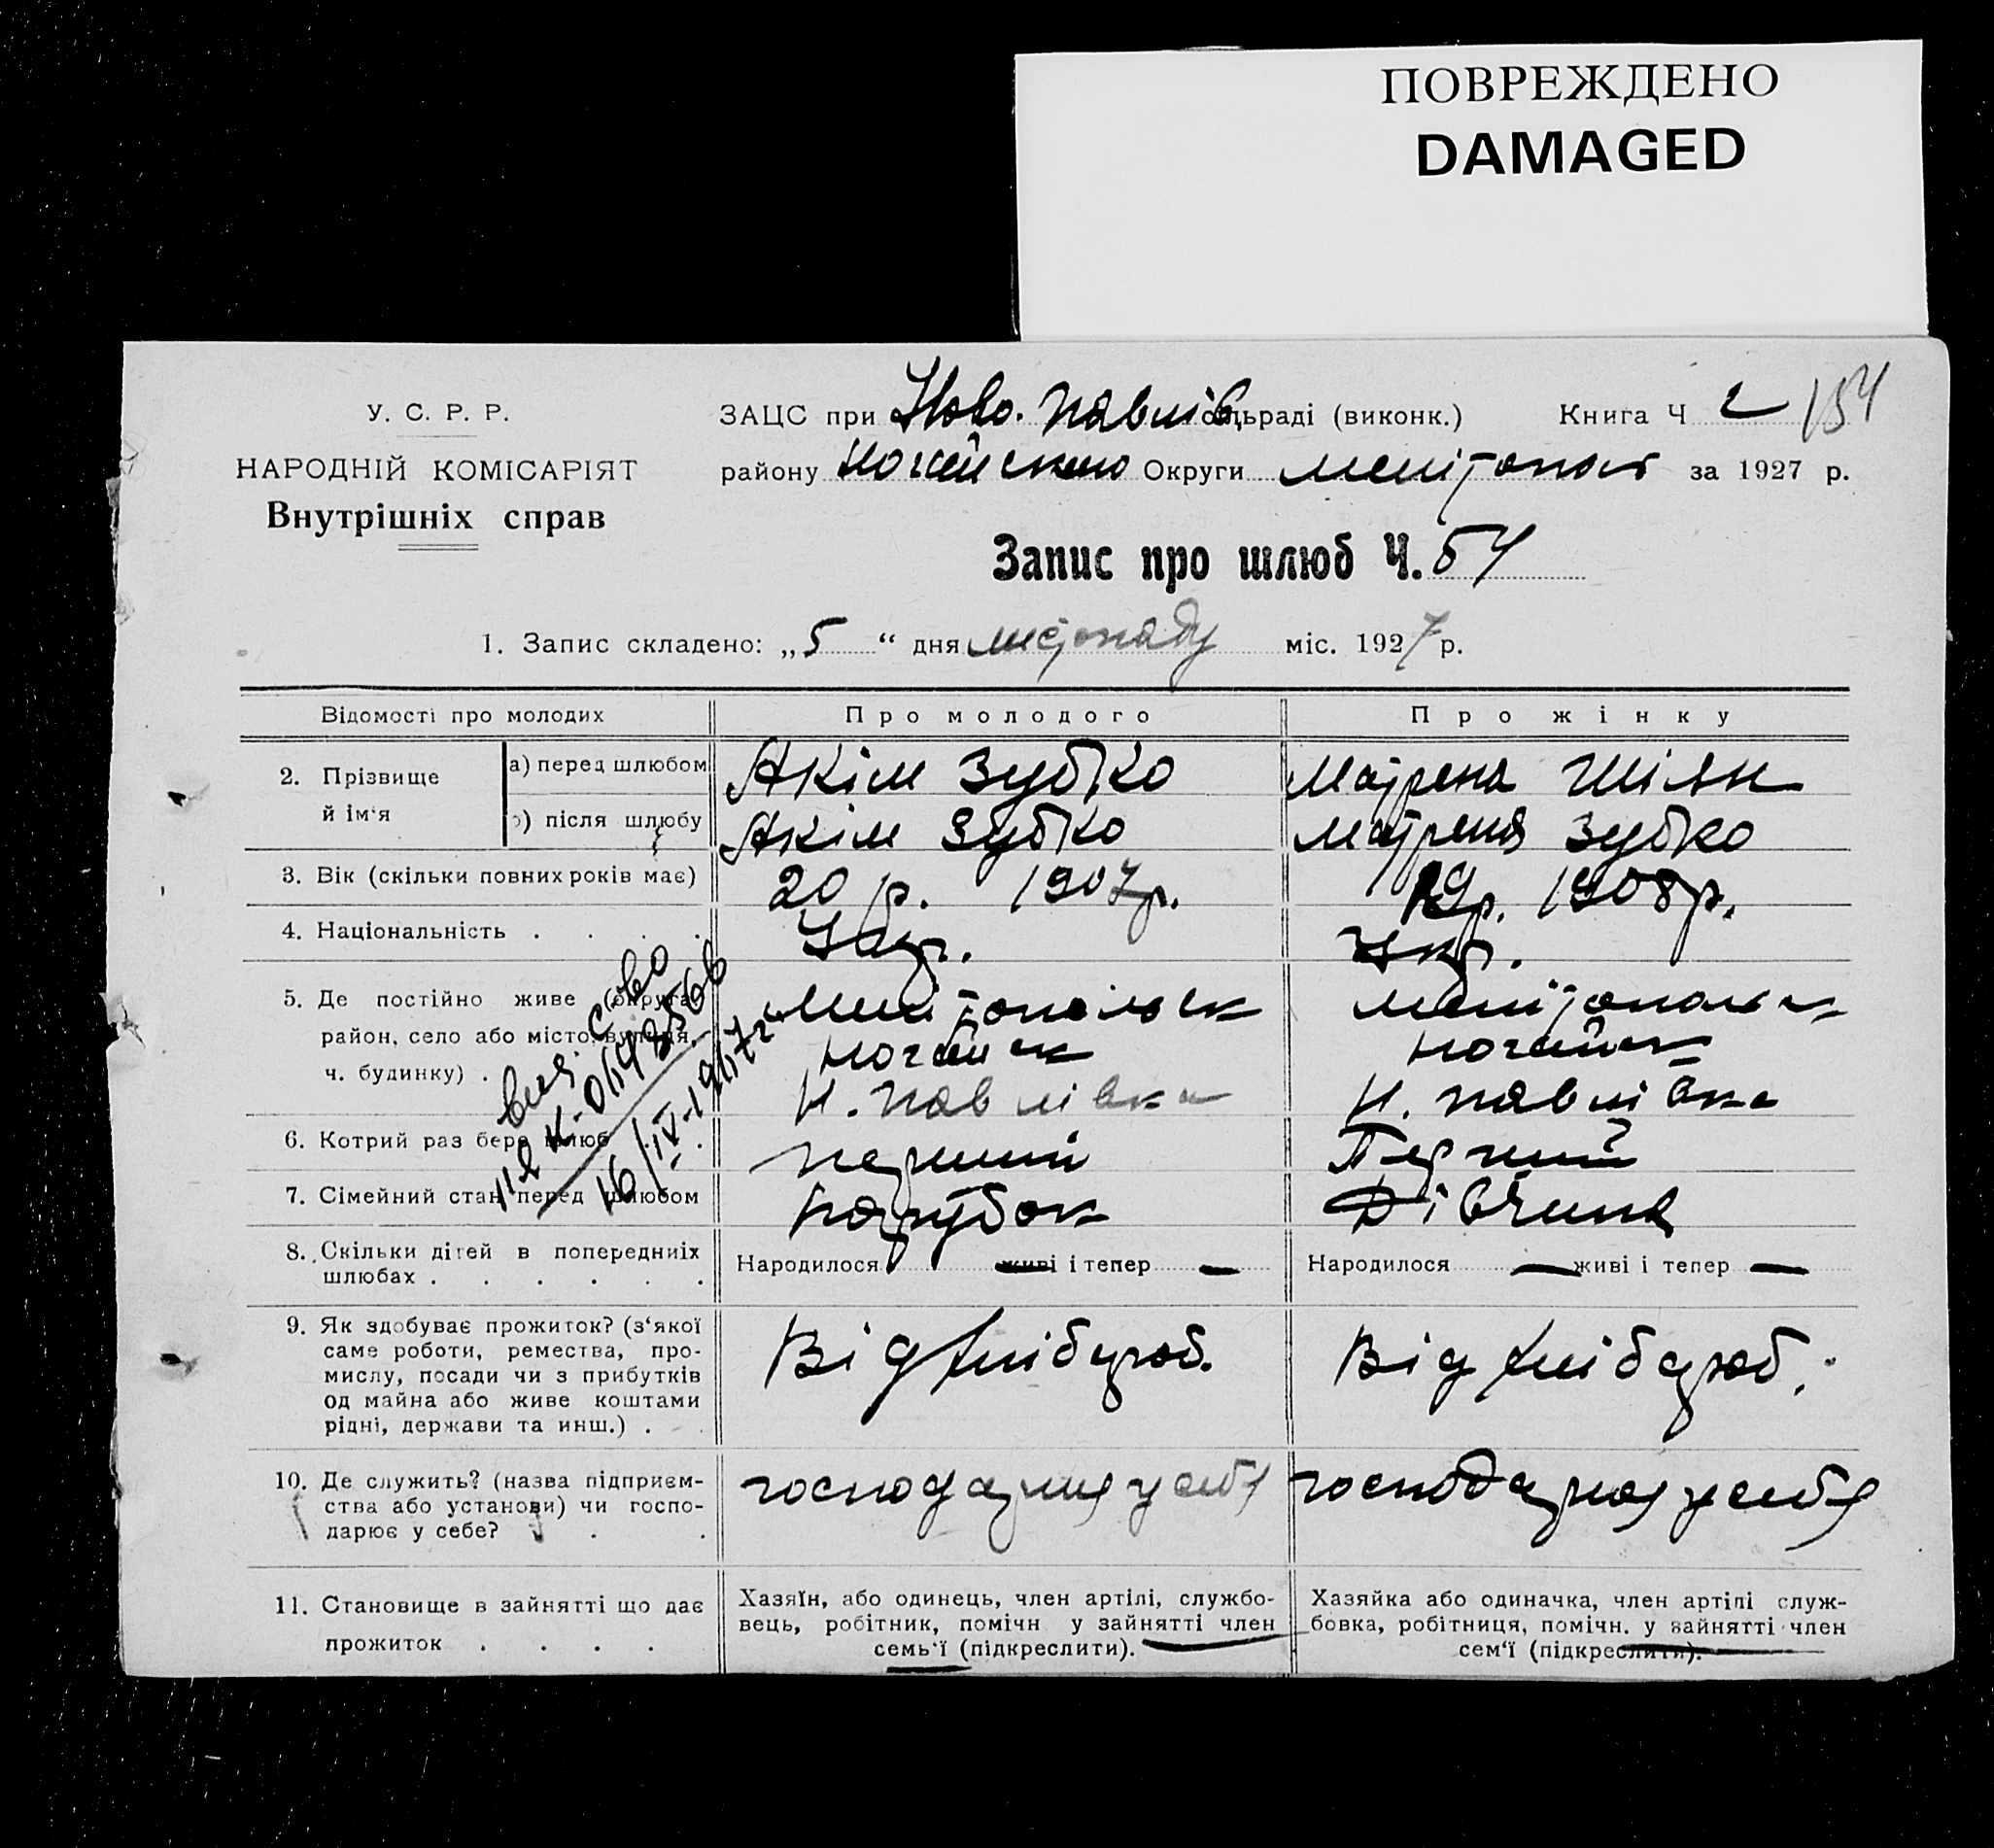 ПОВРЕЖДЕНО
DAMAGED
У. С. Р. Р.
НАРОДНІЙ КОМІСАРІЯТ
Внутрішніх справ
ЗАЦС при Ново. Павлів. сільраді (виконк.) Книга Ч 2 154
району Ногайського Округи Мелітопол за 1927 р.
Запис про шлюб Ч. 54
1. Запис складено: „5“ дня листопаду міс. 1927 р.
Відомості про молодих Про молодого Про жінку
2. Прізвище й ім‘я
а) перед шлюбом Акім Зубко Матрена Шіян
б) після шлюбу Акім Зубко Матрена Зубко
3. Вік (скільки повних років має) 20 р. 1907р. 19р. 1908р.
4. Національність . . . . Укр. Укр.
5. Де постійно живе (округа, Мелітопольск Мелітопольск
район, село або місто, вулиця, Ногайск Ногайск
ч. будинку) . Н. Павлівка Н. Павлівка
6. Котрий раз бере шлюб . . перший Перший
7. Сімейний стан перед шлюбом парубок Дівчина
8. Скільки дітей в попередніх Народилося — живі і тепер — Народилося — живі і тепер —
шлюбах . . . . . .
9. Як здобуває прожиток? (з‘якої
саме роботи, ремества, про-
мислу, посади чи з прибутків
од майна або живе коштами
рідні, держави та инш.) .
Від хлібороб. Від хлібороб.
10. Де служить? (назва підприєм-
ства або установи) чи госпо-
дарює у себе? . .
господарює у себе господарює у себе
11. Становище в зайнятті що дає
прожиток . . . .
Хазяїн, або одинець, член артілі, службо-
вець, робітник, помічн у зайнятті член
семь‘ї (підкреслити).
Хазяйка або одиначка, член артілі служ-
бовка, робітниця, помічн. у зайнятті член
сем‘ї (підкреслити).